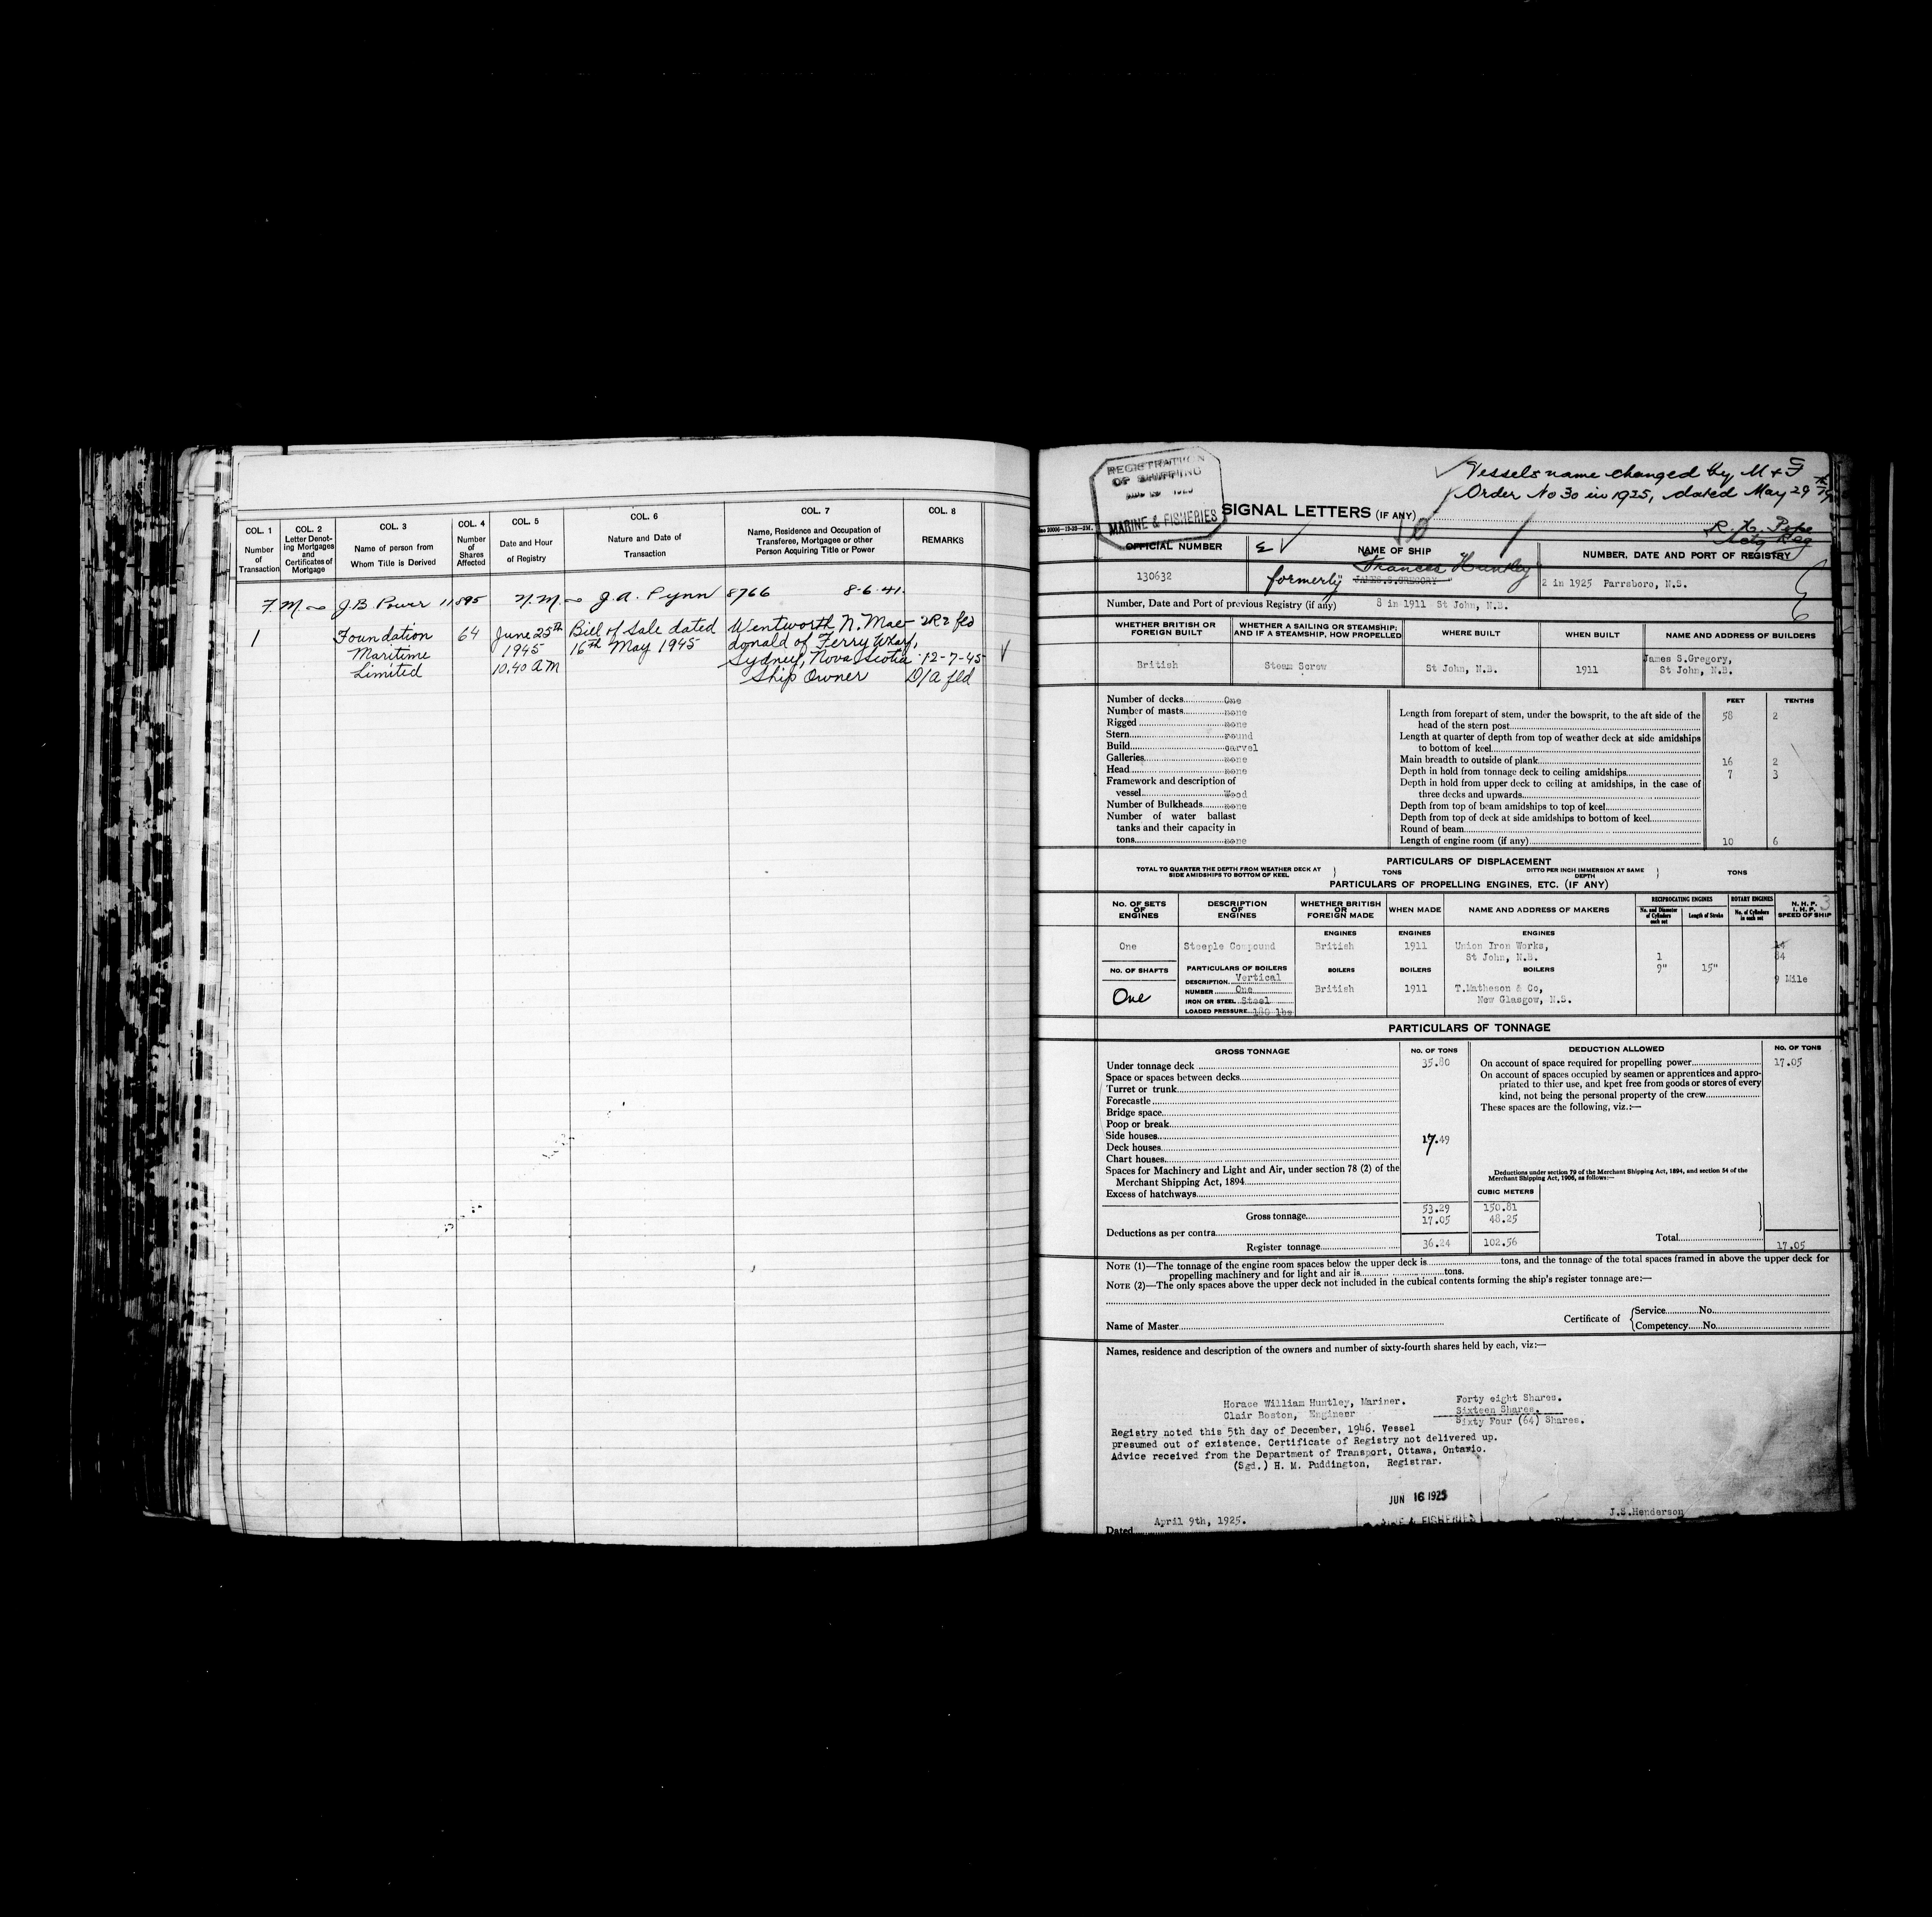 COL. 1
Number
of
Transaction
COL. 2
Letter Denot-
ing Mortgages
and
Certificates of
Mortgage
COL. 3
Name of person from
Whom Title is Derived
COL. 4
Number
of
Shares
Affected
COL. 5
Date and Hour
of Registry
COL. 6
Nature and Date of
Transaction
COL. 7
Name, Residence and Occupation of
Transferee, Mortgagee or other
Person Acquiring Title or Power
COL. 8
REMARKS
F. M. J. B. Power 11895 N. M. J. A. Pynn 8766 8-6-41.
1
Foundation
Maritime
Limited
64
June 25th
1945
10.40 AM
Bill of Sale dated
16th May 1945
Wentworth N. Mac-
donald of Ferry Wharf,
Sydney, Nova Scotia
Ship Owner
2R2 fld
12-7-45
D/A fld
Vessels name changed by M & F
Order No 30 in 1925, dated May 29th
REGISTRATION
OF SHIPPING
1925
MARINE & FISHERIES
SIGNAL LETTERS (IF ANY)
Actg Reg
OFFICIAL NUMBER
130632
NAME OF SHIP
"Frances Huntley"
formerly JAMES S. GREGORY
NUMBER, DATE AND PORT OF REGISTRY
2 in 1925 Parrsboro, N.S.
Number, Date and Port of previous Registry (if any) 8 in 1911 St John, N.B.
WHETHER BRITISH OR
FOREIGN BUILT
WHETHER A SAILING OR STEAMSHIP;
AND IF A STEAMSHIP, HOW PROPELLED
WHERE BUILT
WHEN BUILT
NAME AND ADDRESS OF BUILDERS
British
Steam Screw
St John, N.B.
1911
James S.Gregory,
St John, N.B.
Number of decks One
Number of masts none
Rigged none
Stern round
Build carvel
Galleries none
Head none
Framework and description of
vessel Wood
Number of Bulkheads none
Number of water ballast
tanks and their capacity in
tons none
FEET TENTHS
Length from forepart of stem, under the bowsprit, to the aft side of the
head of the stern post 58 2
Length at quarter of depth from top of weather deck at side amidships
to bottom of keel
Main breadth to outside of plank 16 2
Depth in hold from tonnage deck to ceiling amidships 7 3
Depth in hold from upper deck to ceiling at amidships, in the case of
three decks and upwards
Depth from top of beam amidships to top of keel
Depth from top of deck at side amidships to bottom of keel
Round of beam
Length of engine room (if any) 10 6
PARTICULARS OF DISPLACEMENT
TOTAL TO QUARTER THE DEPTH FROM WEATHER DECK AT
SIDE AMIDSHIPS TO BOTTOM OF KEEL
TONS
DITTO PER INCH IMMERSION AT SAME
DEPTH
TONS
PARTICULARS OF PROPELLING ENGINES, ETC. (IF ANY)
No. OF SETS
OF
ENGINES
DESCRIPTION
OF
ENGINES
WHETHER BRITISH
OR
FOREIGN MADE
WHEN MADE
NAME AND ADDRESS OF MAKERS
RECIPROCATING ENGINES
No. and Diameter
of Cylinders
each set
Length of Stroke
ROTARY ENGINES
No. of Cylinders
in each set
N. H. P. 3
I. H. P.
SPEED OF SHIP
ENGINES ENGINES ENGINES
One
Steeple Compound
British
1911
Union Iron Works,
St John, N.B.
1
9"
15"
84
9 Mile
No. OF SHAFTS
One
PARTICULARS OF BOILERS
DESCRIPTION Vertical
NUMBER One
IRON OR STEEL Steel
LOADED PRESSURE 180 lbs
BOILERS BOILERS BOILERS
British
1911
T.Matheson & Co,
New Glasgow, N.S.
PARTICULARS OF TONNAGE
GROSS TONNAGE
No. OF TONS
Under tonnage deck 35.80
Space or spaces between decks
Turret or trunk
Forecastle
Bridge space
Poop or break
Side houses 17.49
Deck houses
Chart houses
Spaces for Machinery and Light and Air, under section 78 (2) of the
Merchant Shipping Act, 1894
Excess of hatchways
Gross tonnage 53.29 150.81
17.05 48.25
Deductions as per contra
Register tonnage 36.24 102.56
DEDUCTION ALLOWED
No. OF TONS
On account of space required for propelling power 17.05
On account of spaces occupied by seamen or apprentices and appro-
priated to thier use, and kpet free from goods or stores of every
kind, not being the personal property of the crew
These spaces are the following, viz.:—
Deductions under section 79 of the Merchant Shipping Act, 1894, and section 54 of the
Merchant Shipping Act, 1906, as follows:—
CUBIC METERS
Total 17.05
NOTE (1)—The tonnage of the engine room spaces below the upper deck is tons, and the tonnage of the total spaces framed in above the upper deck for
propelling machinery and for light and air is tons.
NOTE (2)—The only spaces above the upper deck not included in the cubical contents forming the ship's register tonnage are:—
Name of Master
Certificate of
Service No.
Competency No.
Names, residence and description of the owners and number of sixty-fourth shares held by each, viz:—
Horace William Huntley, Mariner. Forty eight Shares.
Clair Boston, Engineer Sixteen Shares.
Sixty Four (64) Shares.
Registry noted this 5th day of December, 1946. Vessel
presumed out of existence. Certificate of Registry not delivered up.
Advice received from the Department of Transport, Ottawa, Ontario.
(Sgd.) H. M. Puddington, Registrar.
JUN 16 1925
& FISHERIES
Dated April 9th, 1925.
J.S.Henderson